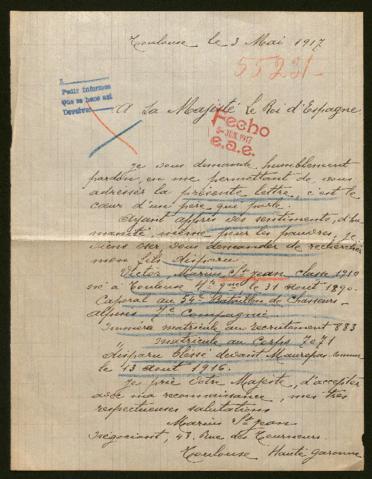 Toulouse le 3 Mai 1917
55231
Pedir informes
que se hace así
Devolver
A La Majesté Le Roi d'Espagne
Fecho
JUN. 1917
e.a.e.
Je vous demande humblement
pardon, en me permettant de vous
adresser la présente lettre, c'est le
cœur d'un père qui parle.
Ayant appris vos sentiments, d'hu
manité, même pour les pauvres, je
viens oser, vous demander de rechercher
mon fils disparu
Victor Marius St Jean Classe 1910
né à Toulouse Hte Gne le 31 août 1890.
Caporal au 54e Bataillon de Chasseurs
alpins 7e Compagnie
Numéro matricule au recrutement 883
matricule au Corps 7071
disparu blessé devant Maurepas Somme
le 13 août 1916.
Je prie Votre Majesté, d'accepter
avec ma reconnaissance, mes très
respectueuses salutations
Marius St Jean
Négociant, 47 Rue des Tourneurs
Toulouse Haute Garonne